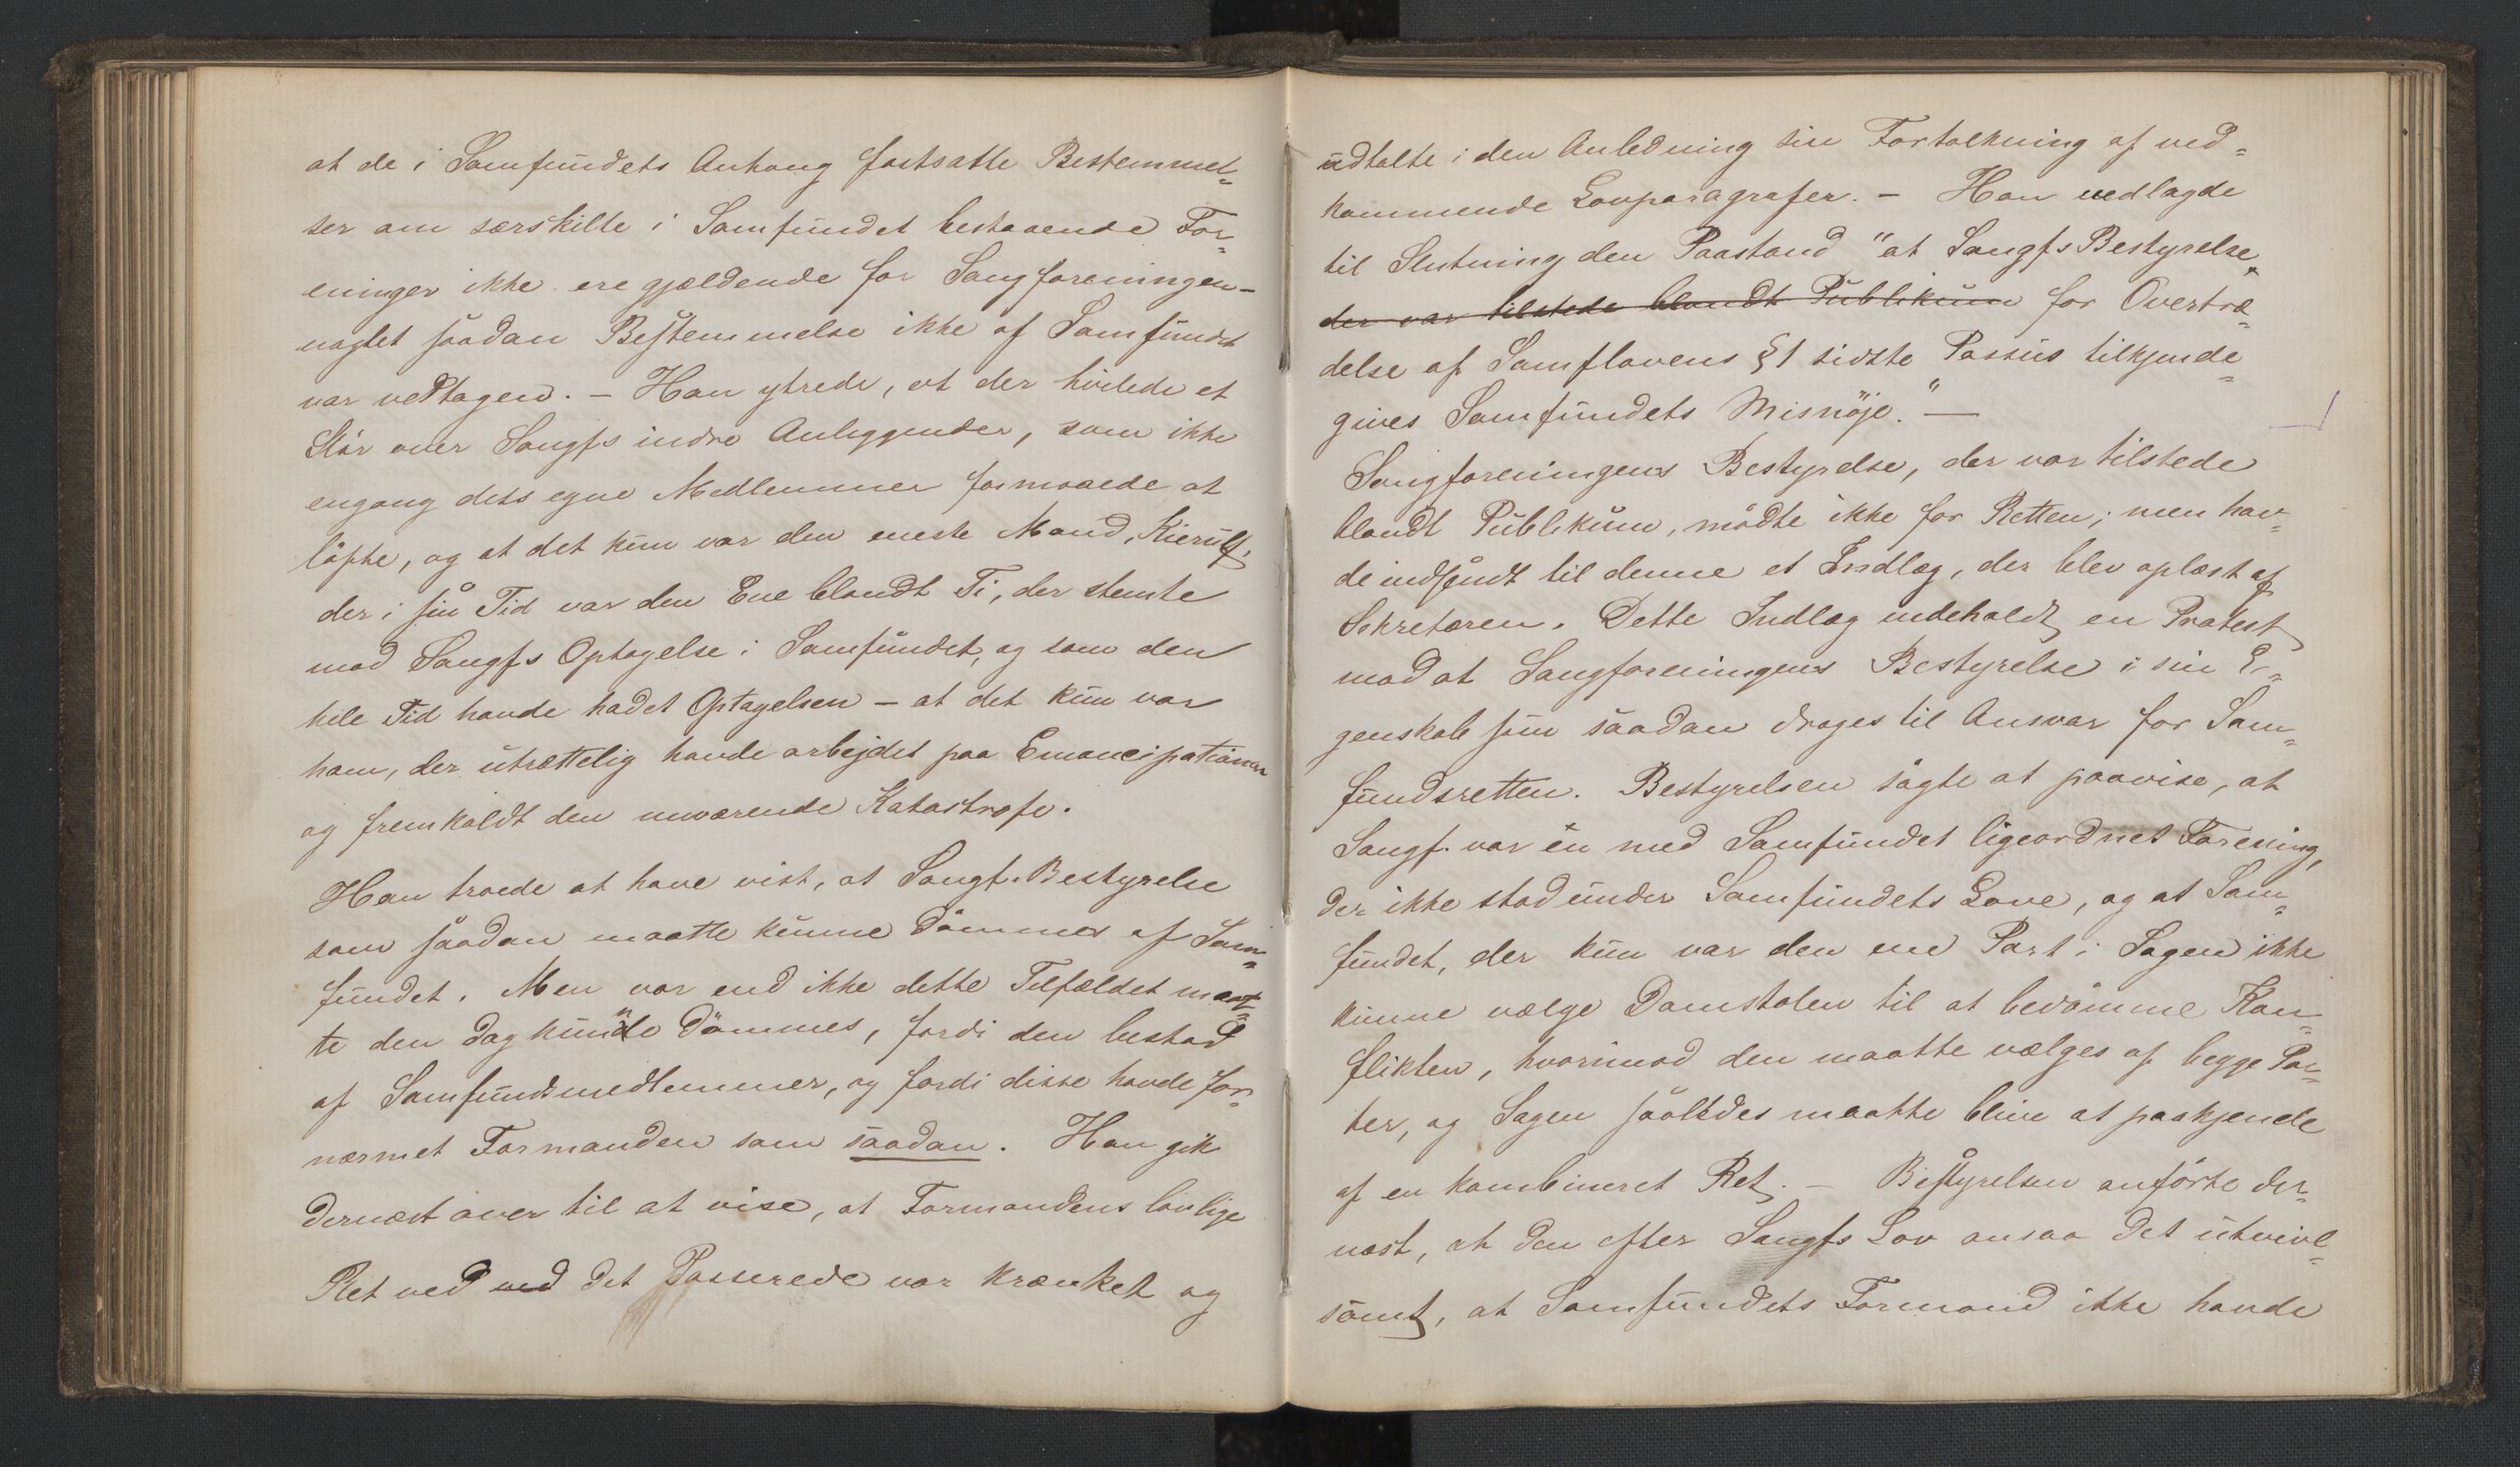 at de i Samfundets Anhang fastsatte Bestemmel=
ser om særskilte i Samfundet bestaaende For=
eninger ikke ere gjældende for Sangforeningen –
uagtet saadan Bestemmelse ikke af Samfundet
var vedtagen. – Han ytrede, at der hvilede et
Slør over Sangfs indre Anliggender, som ikke
engang dets egne Medlemmer formaaede at
løfte, og at det kun var den eneste Mand, Kierulf,
der i sin Tid var den Ene blandt Ti, der stemte
mod Sangfs Optagelse i Samfundet, og som den
hele Tid havde hadet Optagelsen – at det kun var
ham, der utrættelig havde arbejdet paa Emancipationen
og fremkaldt den nuværende Katastrofe.
Han troede at have vist, at Sangf. Bestyrelse
som saadan maatte kunne dömmes af Sam=
fundet. Men var end ikke dette Tilfældet maat=
te den dog kunne dömmes, fordi den bestod
af Samfundsmedlemmer, og fordi disse havde for=
nærmet Formanden som saadan. Han gik
dernæst over til at vise, at Formandens lovlige
Ret ved ved det Passerede var krænket og
udtalte i den Anledning sin Fortolkning af ved=
kommende Lovparagrafer. – Han nedlagde
til Slutning den Paastand "at Sangfs Bestyrelse,
der var tilstede blandt Publikum for Overtræ=
delse af Samflovens § 1 sidste Passus tilkjende=
gives Samfundets Misnöje." –
Sangforeningens Bestyrelse, der var tilstede
blandt Publikum, mödte ikke for Retten; men hav=
de indsendt til denne et Indlæg, der blev oplæst af
Sekretæren. Dette Indlæg indeholdt en Protest
mod at Sangforeningens Bestyrelse i sin E=
genskab som saadan drages til Ansvar for Sam=
fundsretten. Bestyrelsen søgte at paavise, at
Sangf. var en med Samfundet ligeordnet Forening,
der ikke stod under Samfundets Love, og at Sam=
fundet, der kun var den ene Part i Sagen ikke
kunne vælge Domstolen til at bedömme Kon=
flikten, hvorimod den maatte vælges af begge Par=
ter, og Sagen saaledes maatte blive at paakjende
af en kombineret Ret. – Bestyrelsen anförte der=
næst, at den efter Sangfs Lov ansaa det utvivl=
somt, at Samfundets Formand ikke havde